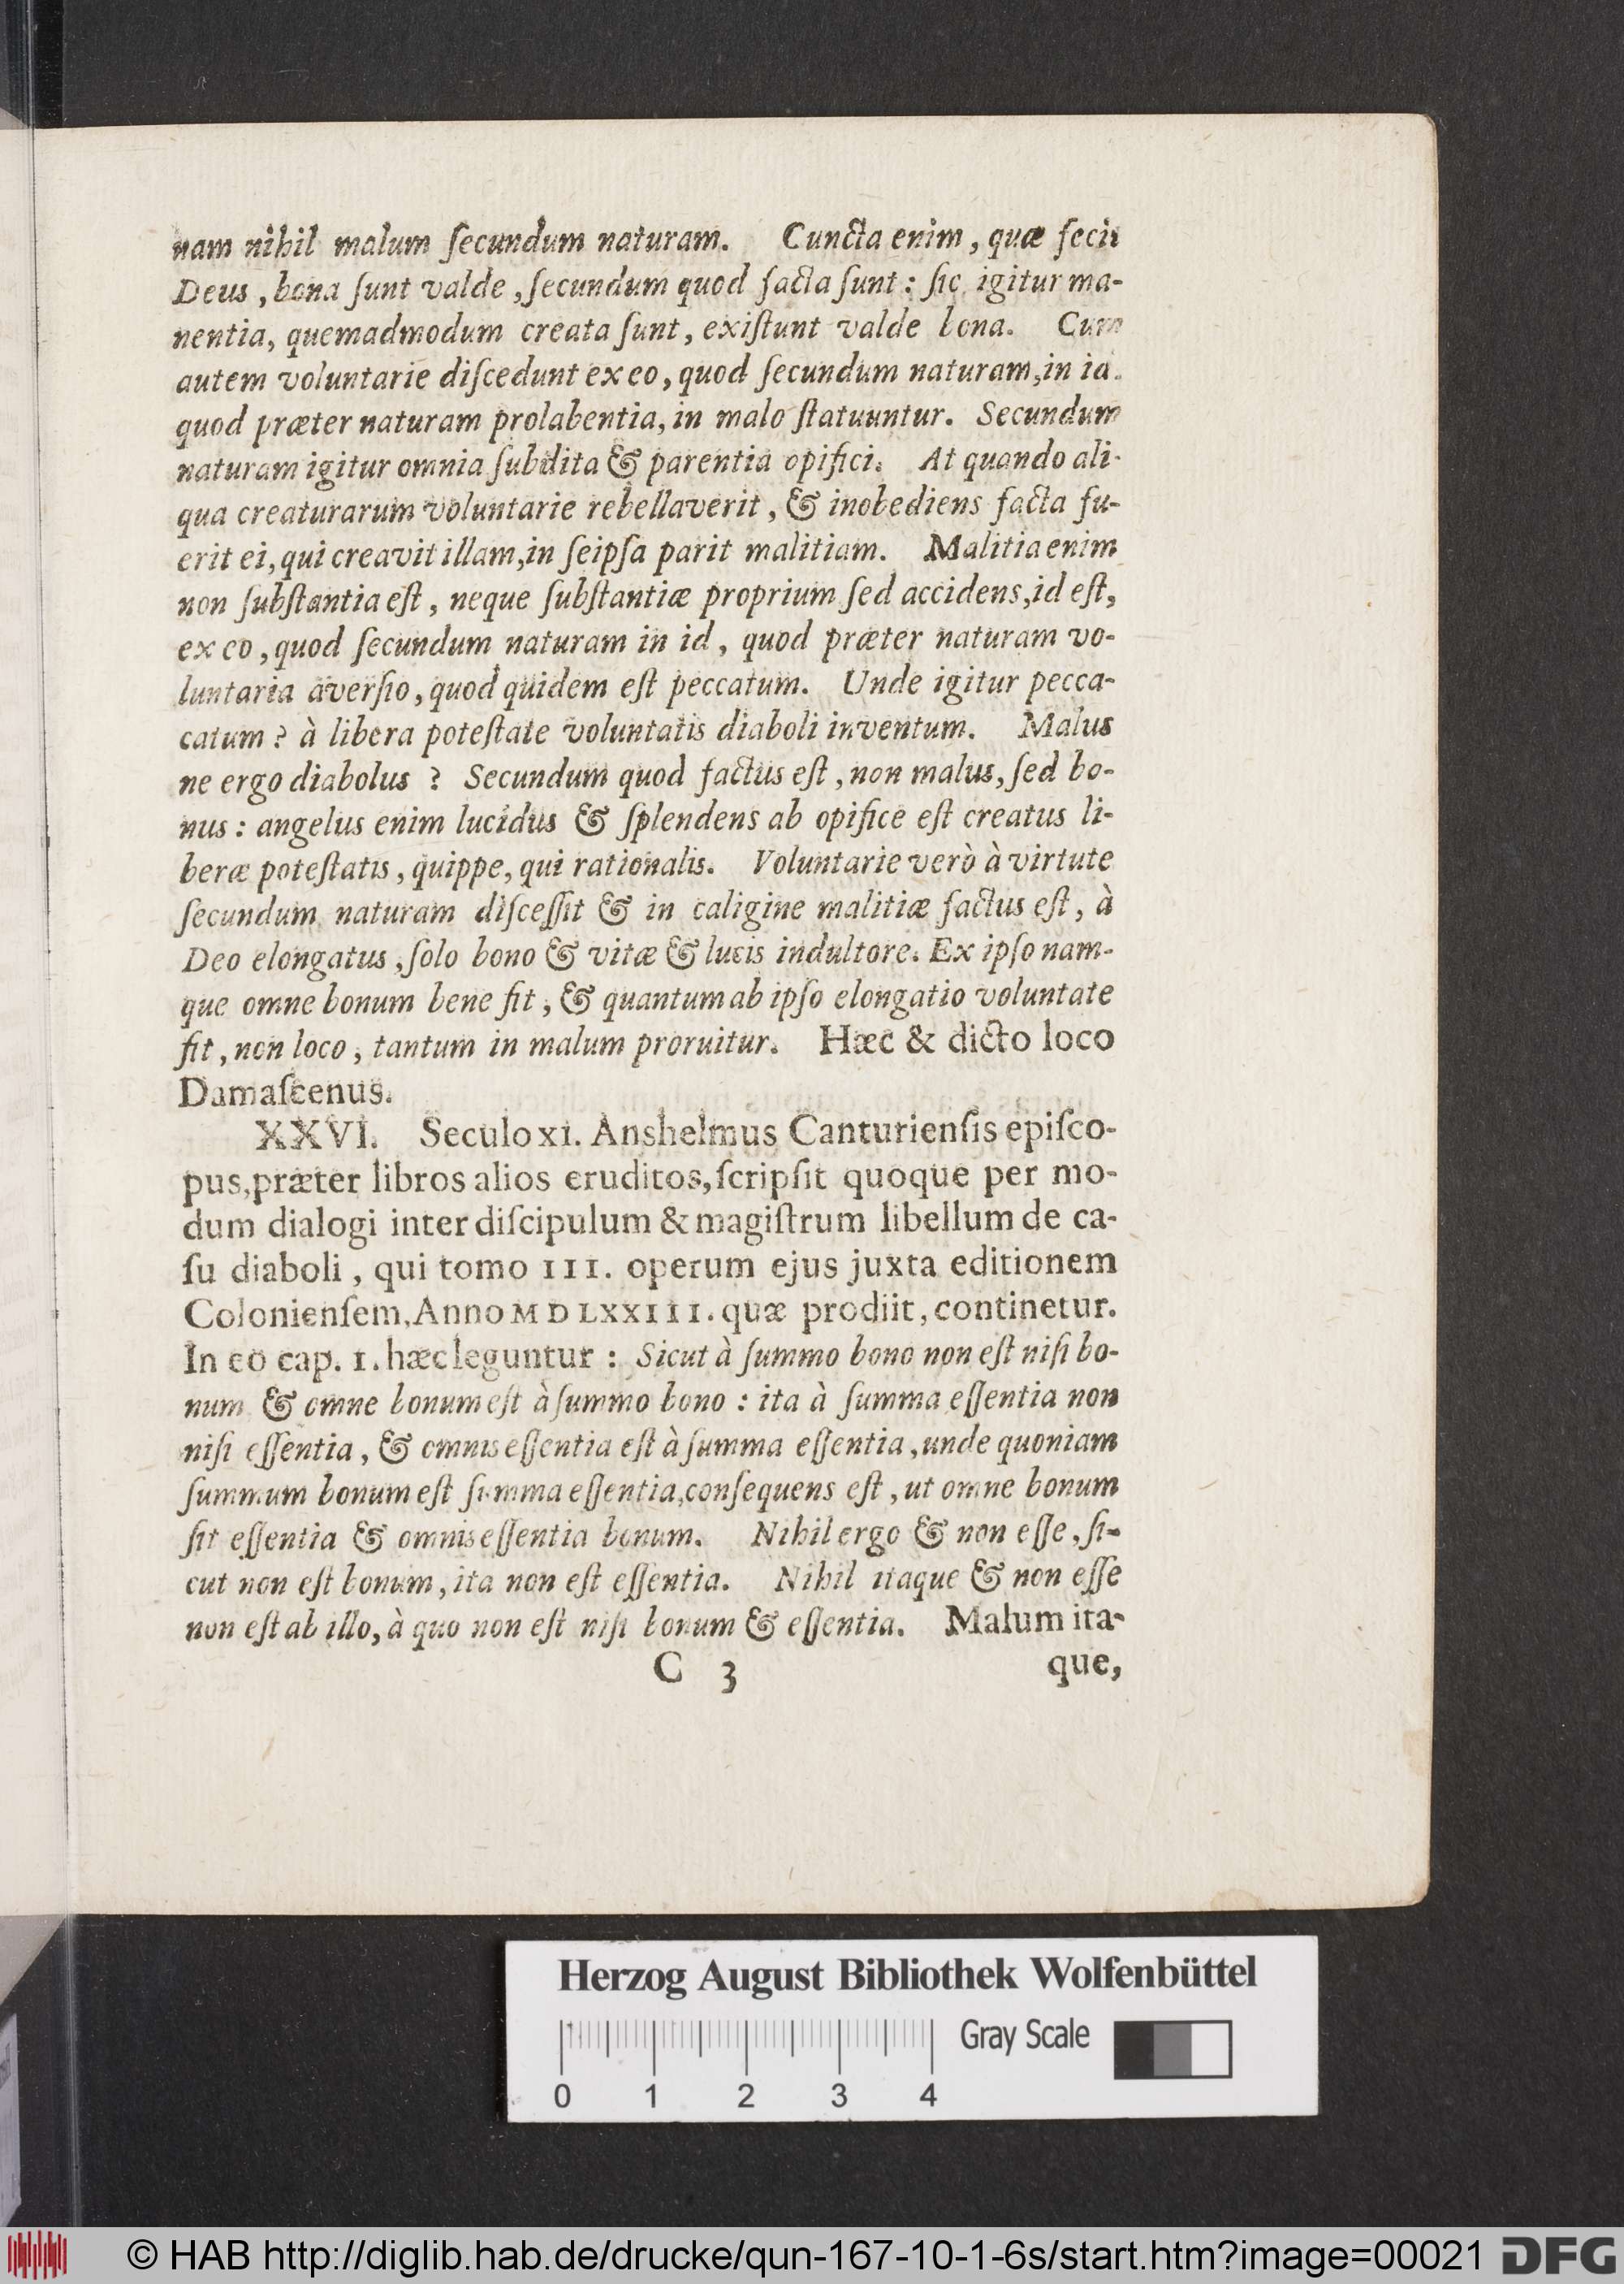 nam nihil malum ſecundum naturam. Cuncta enim, quæ fecit
Deus, bona ſunt valde, ſecundum quod facta ſunt: ſic igitur ma-
nentia, quemadmodum creata ſunt, exiſtunt valde bona. Cum
autem voluntarie diſcedunt ex eo, quod ſecundum naturam, in id.
quod præter naturam prolabentia, in malo ſtatuuntur. Secundum
naturam igitur omnia ſubdita & parentia opifici. At quando ali-
qua creaturarum voluntarie rebellaverit, & inobediens facta fu-
erit ei, qui creavit illam, in ſeipſa parit malitiam. Malitia enim
non ſubſtantia eſt, neque ſubſtantiæ proprium ſed accidens, id eſt,
ex eo, quod ſecundum naturam in id, quod præter naturam vo-
luntaria averſio, quod quidem eſt peccatum. Unde igitur pecca-
catum? à libera poteſtate voluntatis diaboli inventum. Malus
ne ergo diabolus? Secundum quod factus eſt, non malus, ſed bo-
nus: angelus enim lucidus & ſplendens ab opifice eſt creatus li-
beræ poteſtatis, quippe, qui rationalis. Voluntarie verò à virtute
ſecundum naturam diſceſſit & in caligine malitiæ factus eſt, à
Deo elongatus, ſolo bono & vitæ & lucis indultore. Ex ipſo nam-
que omne bonum bene fit, & quantum ab ipſo elongatio voluntate
fit, non loco, tantum in malum proruitur. Hæc & dicto loco
Damaſcenus.
XXVI. Seculo XI. Anshelmus Canturienſis epiſco-
pus, præter libros alios eruditos, ſcripſit quoque per mo-
dum dialogi inter diſcipulum & magiſtrum libellum de ca-
ſu diaboli, qui tomo III. operum ejus juxta editionem
Colonienſem, Anno MDLXXIII. quæ prodiit, continetur.
In eo cap. 1. hæc leguntur: Sicut à ſummo bono non eſt niſi bo-
num & omne bonum eſt à ſummo bono: ita à ſumma eſſentia non
niſi eſſentia, & omnis eſſentia eſt à ſumma eſſentia, unde quoniam
ſummum bonum eſt ſumma eſſentia, conſequens eſt, ut omne bonum
ſit eſſentia & omnis eſſentia bonum. Nihil ergo & non eſſe, ſi-
cut non eſt bonum, ita non eſt eſſentia. Nihil itaque & non eſſe
non eſt ab illo, à quo non eſt niſi bonum & eſſentia. Malum ita-
C 3 que,
Herzog August Bibliothek Wolfenbüttel
Gray Scale
0 1 2 3 4
© HAB http://diglib.hab.de/drucke/qun-167-10-1-6s/start.htm?image=00021 DFG